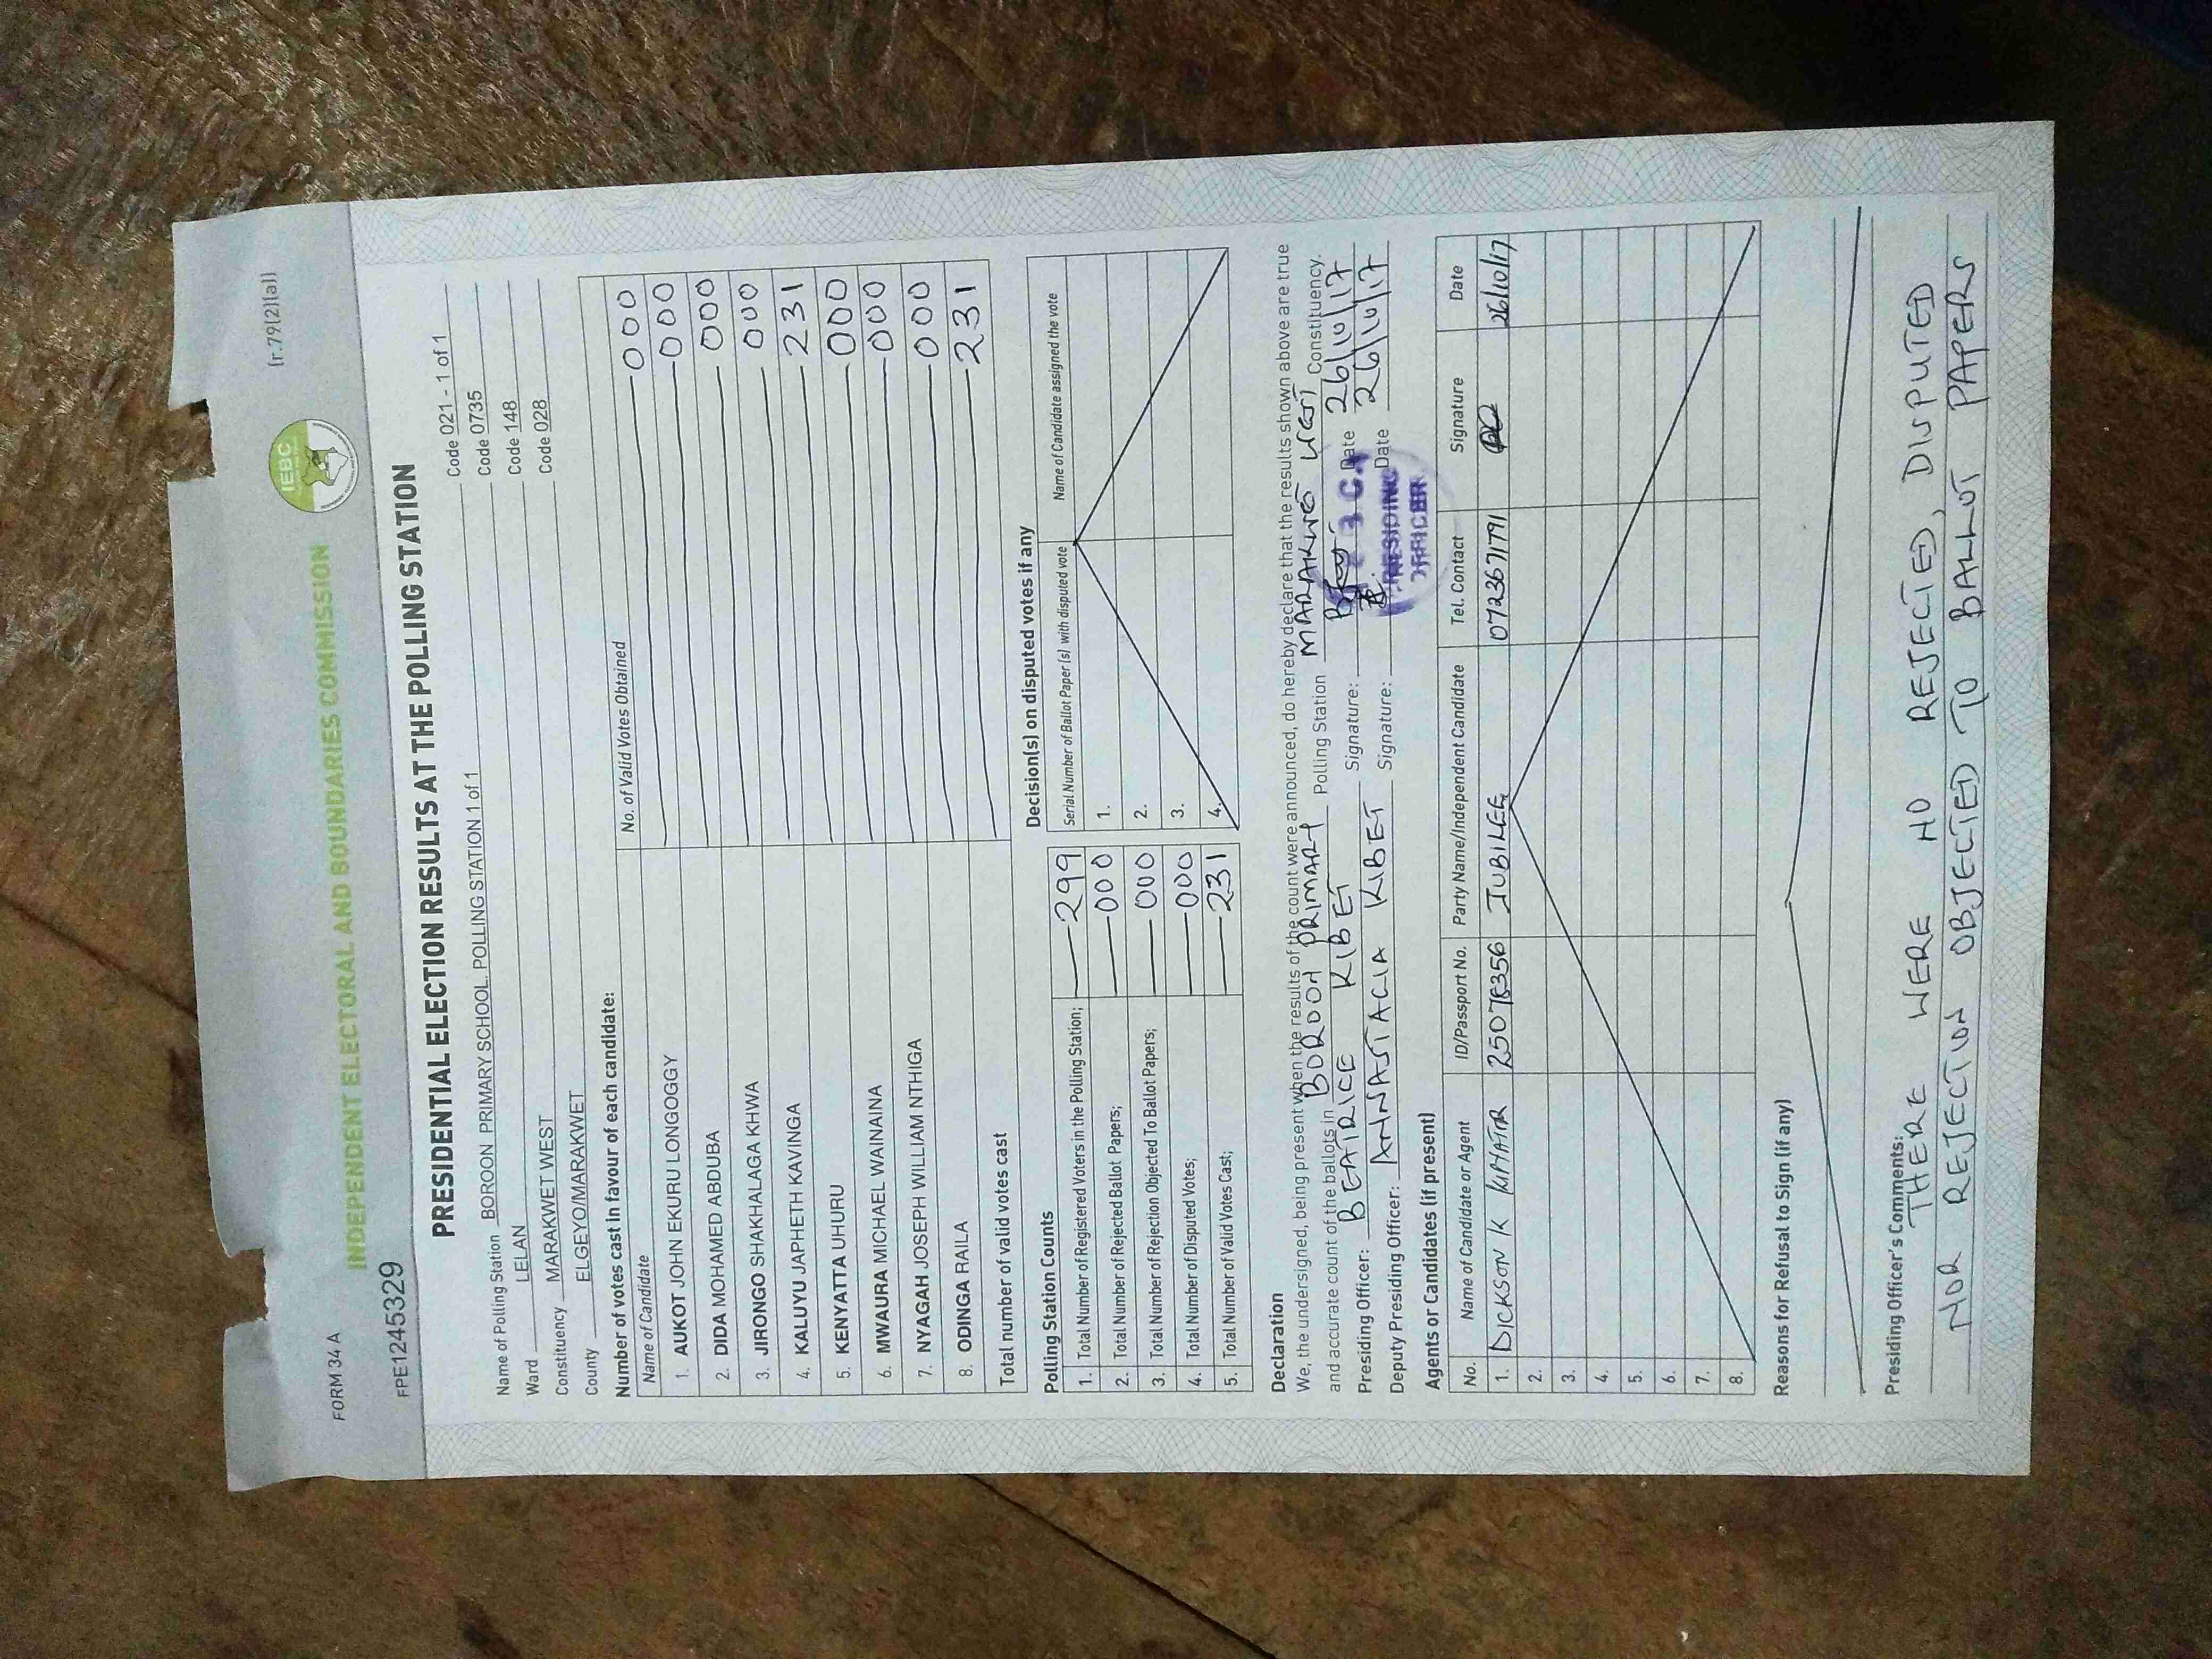 FORM 34 A
(r.79(2)(a))
IEBC
INDEPENDENT ELECTORAL AND BOUNDARIES COMMISSION
FPE1245329
PRESIDENTIAL ELECTION RESULTS AT THE POLLING STATION
Name of Polling Station BOROON PRIMARY SCHOOL. POLLING STATION 1 of 1 Code 021 - 1 of 1
Ward LELAN Code 0735
Constituency MARAKWET WEST Code 148
County ELGEYO/MARAKWET Code 028
Number of votes cast in favour of each candidate:
Name of Candidate No. of Valid Votes Obtained
1. AUKOT JOHN EKURU LONGOGGY 000
2. DIDA MOHAMED ABDUBA 000
3. JIRONGO SHAKHALAGA KHWA 000
4. KALUYU JAPHETH KAVINGA 000
5. KENYATTA UHURU 231
6. MWAURA MICHAEL WAINAINA 000
7. NYAGAH JOSEPH WILLIAM NTHIGA 000
8. ODINGA RAILA 000
Total number of valid votes cast 231
Polling Station Counts
1. Total Number of Registered Voters in the Polling Station; 299
2. Total Number of Rejected Ballot Papers; 000
3. Total Number of Rejection Objected To Ballot Papers; 000
4. Total Number of Disputed Votes; 000
5. Total Number of Valid Votes Cast; 231
Decision(s) on disputed votes if any
Serial Number of Ballot Paper(s) with disputed vote Name of Candidate assigned the vote
1.
2.
3.
4.
Declaration
We, the undersigned, being present when the results of the count were announced, do hereby declare that the results shown above are true
and accurate count of the ballots in BOROON PRIMARY Polling Station MARAKWET WEST Constituency.
Presiding Officer: BEATRICE KIBET Signature: Date 26/10/17
Deputy Presiding Officer: ANNASTACIA KIBET Signature: Date 26/10/17
PRESIDING
OFFICER
Agents or Candidates (if present)
No. Name of Candidate or Agent ID/Passport No. Party Name/Independent Candidate Tel. Contact Signature Date
1. DICKSON K 25078356 JUBILEE 0723671791 26/10/17
2.
3.
4.
5.
6.
7.
8.
Reasons for Refusal to Sign (if any)
Presiding Officer's Comments:
THERE WERE NO REJECTED, DISPUTED
NOR REJECTION OBJECTED TO BALLOT PAPERS